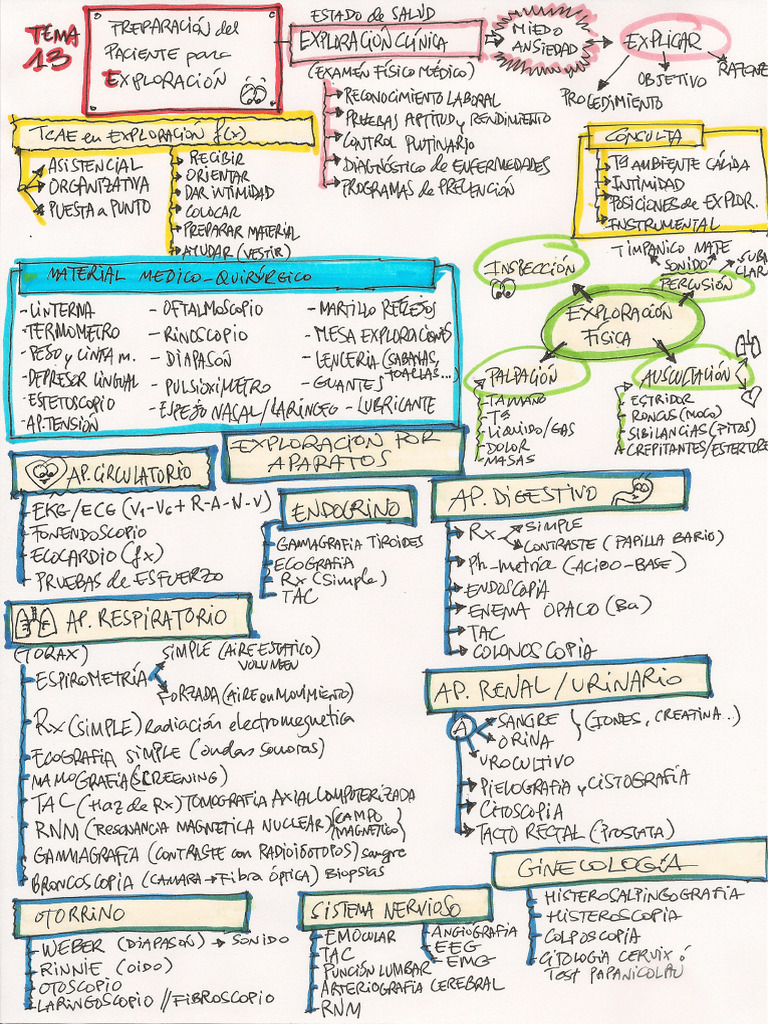 TEMA 13
PREPARACIÓN del
PACIENTE para
EXPLORACIÓN
ESTADO de SALUD
EXPLORACIÓN CLÍNICA
(EXAMEN FÍSICO MÉDICO)
RECONOCIMIENTO LABORAL
PRUEBAS APTITUD y RENDIMIENTO
CONTROL RUTINARIO
DIAGNÓSTICO de ENFERMEDADES
PROGRAMAS de PREVENCIÓN
MIEDO
ANSIEDAD
EXPLICAR
PROCEDIMIENTO
OBJETIVO
TCAE en EXPLORACIÓN f(x)
ASISTENCIAL
ORGANIZATIVA
PUESTA a PUNTO
RECIBIR
ORIENTAR
DAR INTIMIDAD
COLOCAR
PREPARAR MATERIAL
AYUDAR (VESTIR)
CONSULTA
Tª AMBIENTE CÁLIDA
INTIMIDAD
POSICIONES de EXPLOR.
INSTRUMENTAL
MATERIAL MEDICO-QUIRÚRGICO
- LINTERNA
- TERMOMETRO
- PESO y CINTA m.
- DEPRESOR LINGUAL
- ESTETOSCOPIO
- AP.TENSIÓN
- OFTALMOSCOPIO
- RINOSCOPIO
- DIAPASÓN
- PULSIOXIMETRO
- ESPEJO NASAL/LARÍNGEO
- MARTILLO REFLEJOS
- MESA EXPLORACIONES
- LENCERIA (SABANAS, TOALLAS...)
- GUANTES
- LUBRICANTE
EXPLORACIÓN
FÍSICA
INSPECCIÓN
TIMPANICO MATE
SONIDO
PERCUSIÓN
PALPACIÓN
TAMAÑO
Tª
LÍQUIDO/GAS
DOLOR
MASAS
AUSCULTACIÓN
ESTRIDOR
RONCUS (MOCO)
SIBILANCIAS (PITOS)
CREPITANTES/ESTERTORE
EXPLORACION POR
APARATOS
AP. CIRCULATORIO
EKG/ECG (V1-V6 + R-A-N-V)
FONENDOSCOPIO
ECOCARDIO (fx)
PRUEBAS de ESFUERZO
ENDOCRINO
GAMMAGRAFIA TIROIDES
ECOGRAFIA
Rx (Simple)
TAC
AP. DIGESTIVO
Rx
SIMPLE
CONTRASTE (PAPILLA BARIO)
Ph-metria (ACIDO-BASE)
ENDOSCOPIA
ENEMA OPACO (Ba)
TAC
COLONOSCOPIA
AP. RESPIRATORIO
(TORAX)
ESPIROMETRÍA
SIMPLE (AIRE ESTATICO)
VOLUMEN
FORZADA (AIRE en MOVIMIENTO)
Rx (SIMPLE) Radiación electromegnetica
ECOGRAFIA SIMPLE (ondas sonoras)
MAMOGRAFIA (SCREENING)
TAC (Haz de Rx) TOMOGRAFIA AXIAL COMPUTERIZADA
RNM (RESONANCIA MAGNETICA NUCLEAR) (CAMPO MAGNETICO)
GAMMAGRAFÍA (CONTRASTE con RADIOISÓTOPOS) sangre
BRONCOSCOPIA (CAMARA → Fibra óptica) Biopsias
AP. RENAL/URINARIO
A
SANGRE
ORINA
(IONES, CREATINA..)
UROCULTIVO
PIELOGRAFIA y CISTOGRAFÍA
CITOSCOPIA
TACTO RECTAL (PROSTATA)
GINECOLOGÍA
HISTEROSALPINGOGRAFIA
HISTEROSCOPIA
COLPOSCOPIA
CITOLOGIA CERVIX ó
TEST PAPANICOLAU
OTORRINO
WEBER (DIAPASON) → SONIDO
RINNIE (OIDO)
OTOSCOPIO
LARINGOSCOPIO // FIBROSCOPIO
SISTEMA NERVIOSO
EMOCULAR
TAC
PUNCIÓN LUMBAR
ARTERIOGRAFÍA CEREBRAL
RNM
ANGIÓGRAFÍA
EEG
EMG